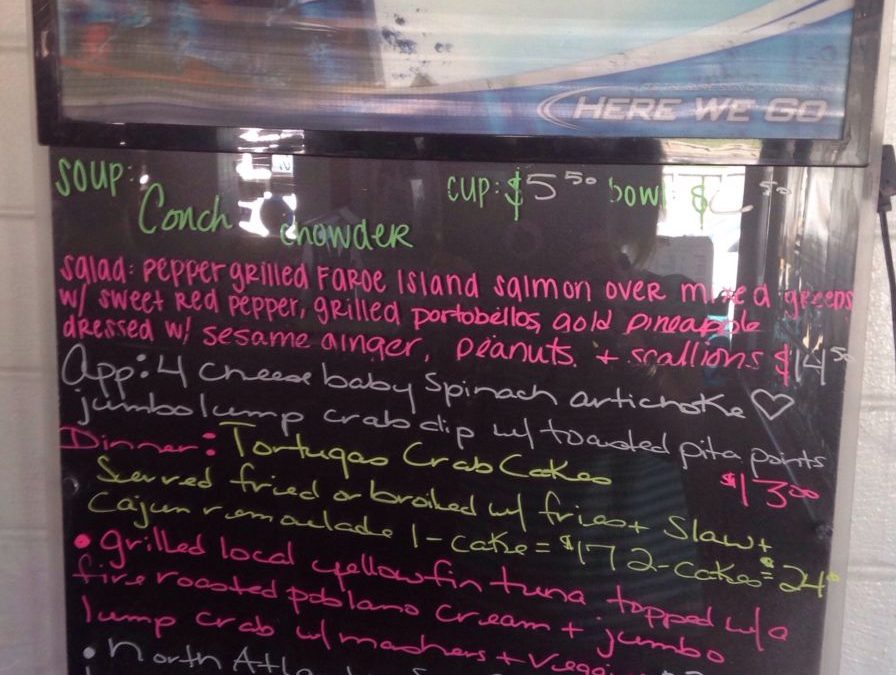 HERE WE GO
SOUP: CUP: $5 50 bowl $ 50
Conch chowder
Salad: Pepper grilled Faroe Island Salmon over mixed greens
w/ sweet red pepper, grilled portobellos, gold Pineapple
dressed w/ sesame ginger, peanuts + scallions $14 50
App: 4 cheese baby Spinach artichoke ♡
jumbo lump crab dip w/ toasted pita points
$13 00
Dinner: Tortugas Crab Cakes
Served fried or broiled w/ fries + Slaw +
Cajun remoulade 1-cake = $17 2-cakes = $24
• grilled local yellowfin tuna topped w/a
fire roasted poblano cream + jumbo
lump crab w/ mashers + Veggi
• North Atla